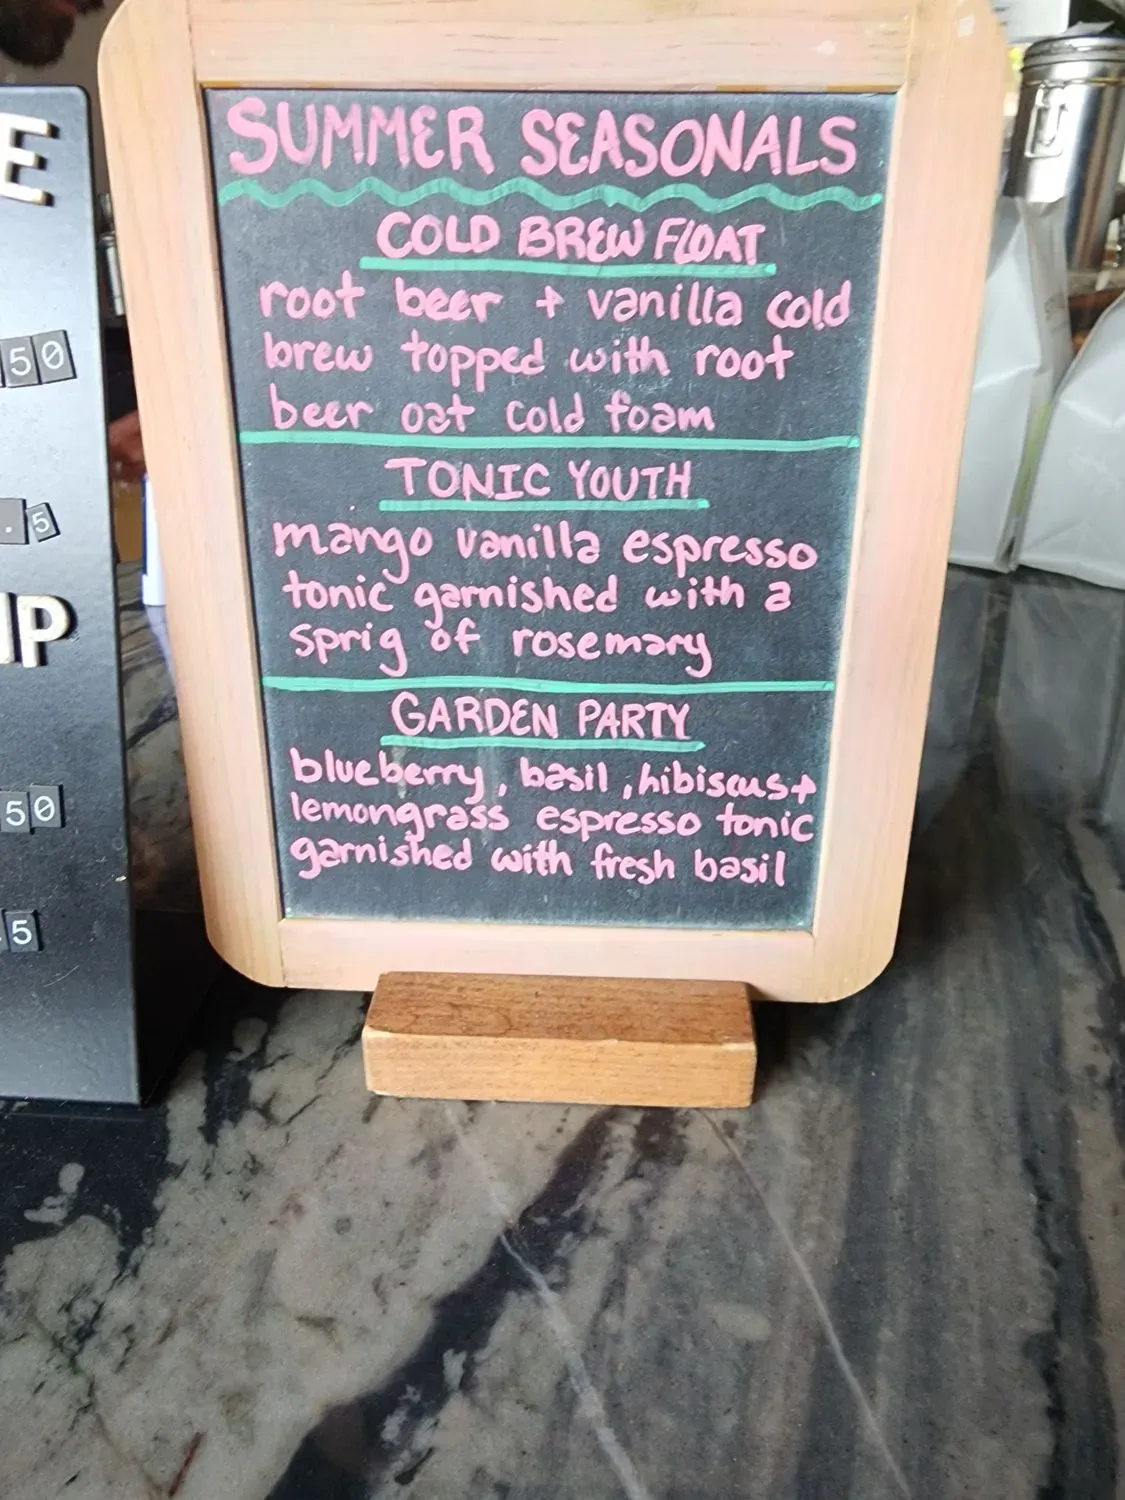 SUMMER SEASONALS
COLD BREW FLOAT
root beer + vanilla cold
brew topped with root
beer oat cold foam
TONIC YOUTH
mango vanilla espresso
tonic garnished with a
sprig of rosemary
GARDEN PARTY
blueberry, basil, hibiscus +
lemongrass espresso tonic
garnished with fresh basil
E
50
.5
IP
50
.5